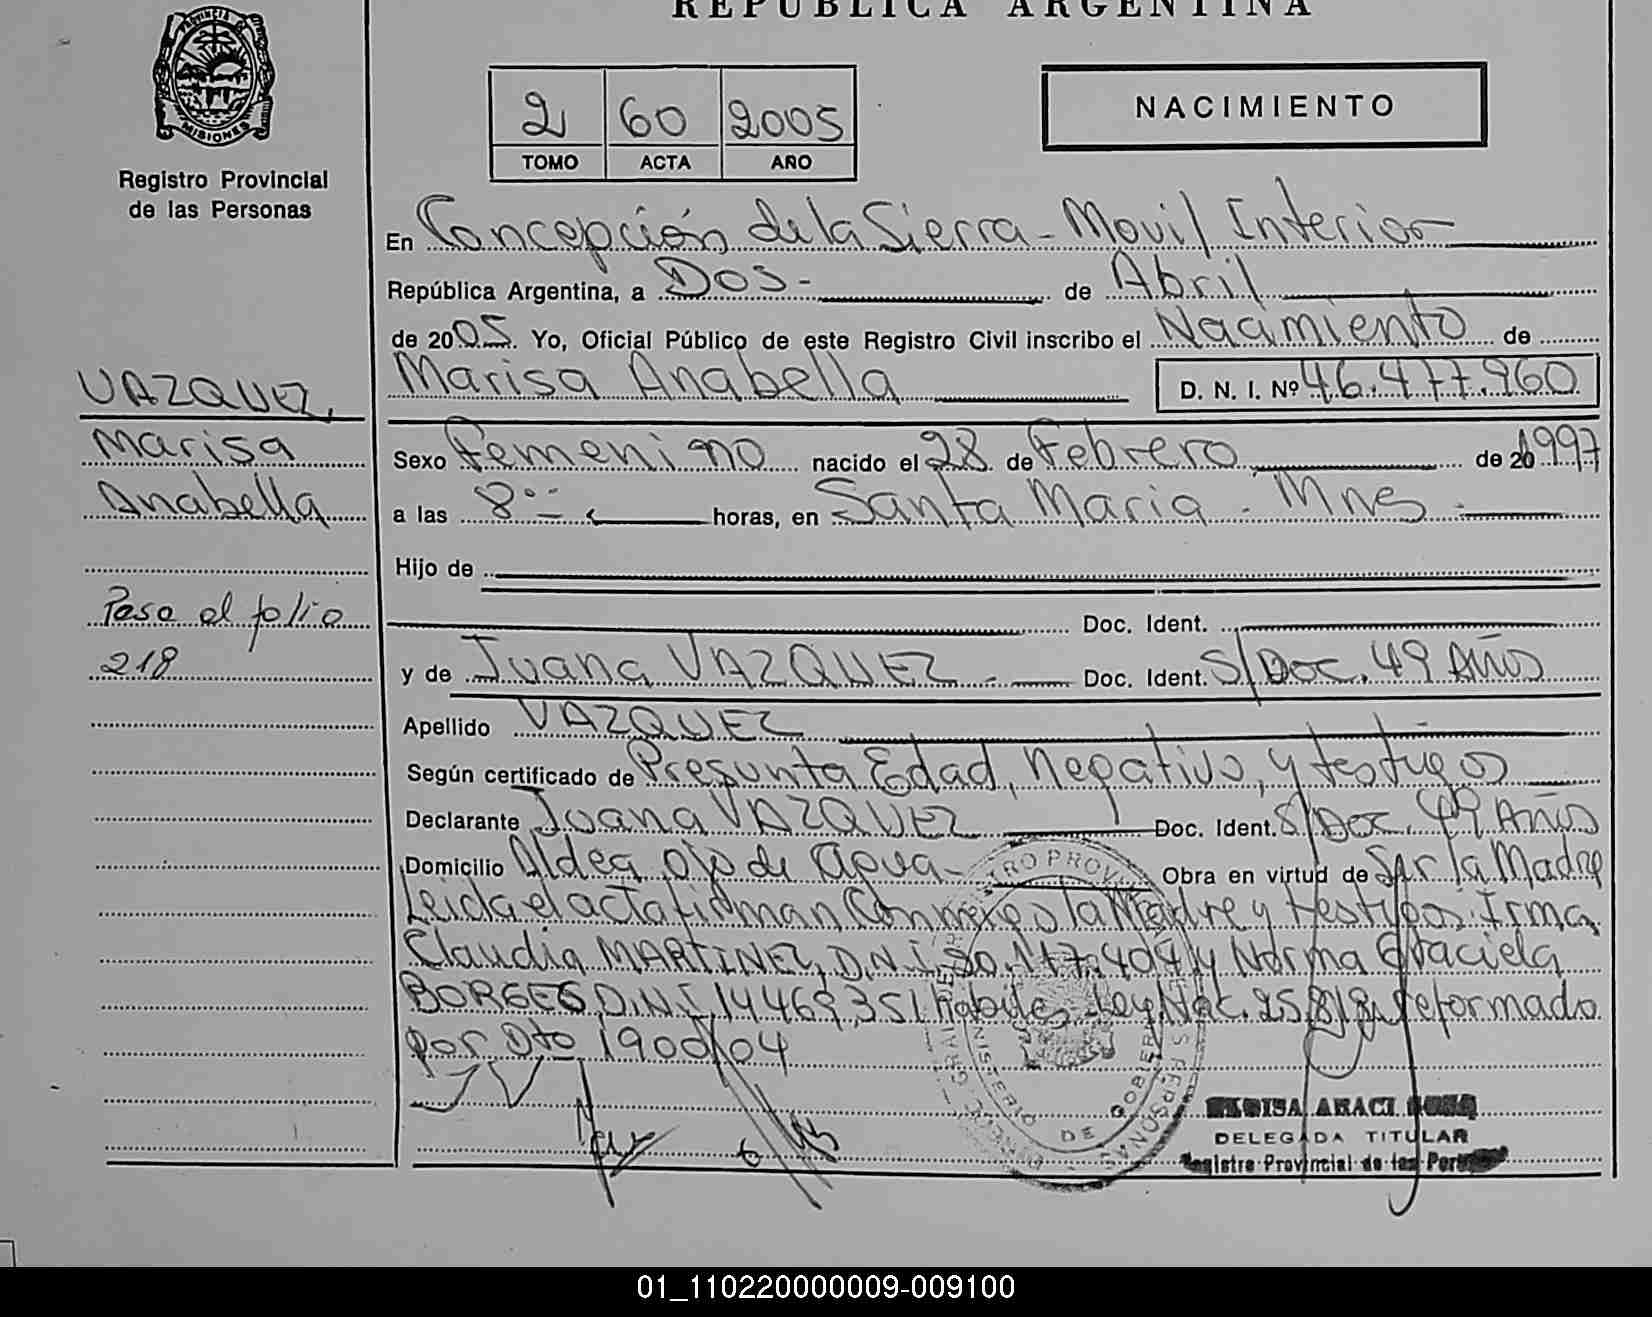 REPUBLICA ARGENTINA
PROVINCIA DE
MISIONES
Registro Provincial
de las Personas
2 60 2005
TOMO ACTA AÑO
NACIMIENTO
En Concepción de la Sierra - Movil Interior
República Argentina, a Dos - de Abril
de 2005. Yo, Oficial Público de este Registro Civil inscribo el Nacimiento de
Marisa Anabella D. N. I. Nº 46.477.960
VAZQUEZ,
Marisa
Anabella
Pase al folio
218
Sexo femenino nacido el 28 de Febrero de 1997
a las 8°° horas, en Santa Maria - Mnes -
Hijo de
Doc. Ident.
y de Juana VAZQUEZ - Doc. Ident. S/Doc. 49 Años
Apellido VAZQUEZ
Según certificado de Presunta Edad, Negativo, y testigos
Declarante Juana VAZQUEZ Doc. Ident. S/Doc. 49 Años
Domicilio Aldea Ojo de Agua - Obra en virtud de Ser la Madre
Leida el acta firman Conmigo la Madre y testigos: Irma
Claudia MARTINEZ, D.N.I. 30.147.404 y Norma Graciela
BORGES, D.N.I. 14.469.351 Ley Nac. 25.819 reformado
por Dto 1900/04
J V
MINISTERIO DE GOBIERNO
DELEGADA TITULAR
Registro Provincial de las
01_110220000009-009100